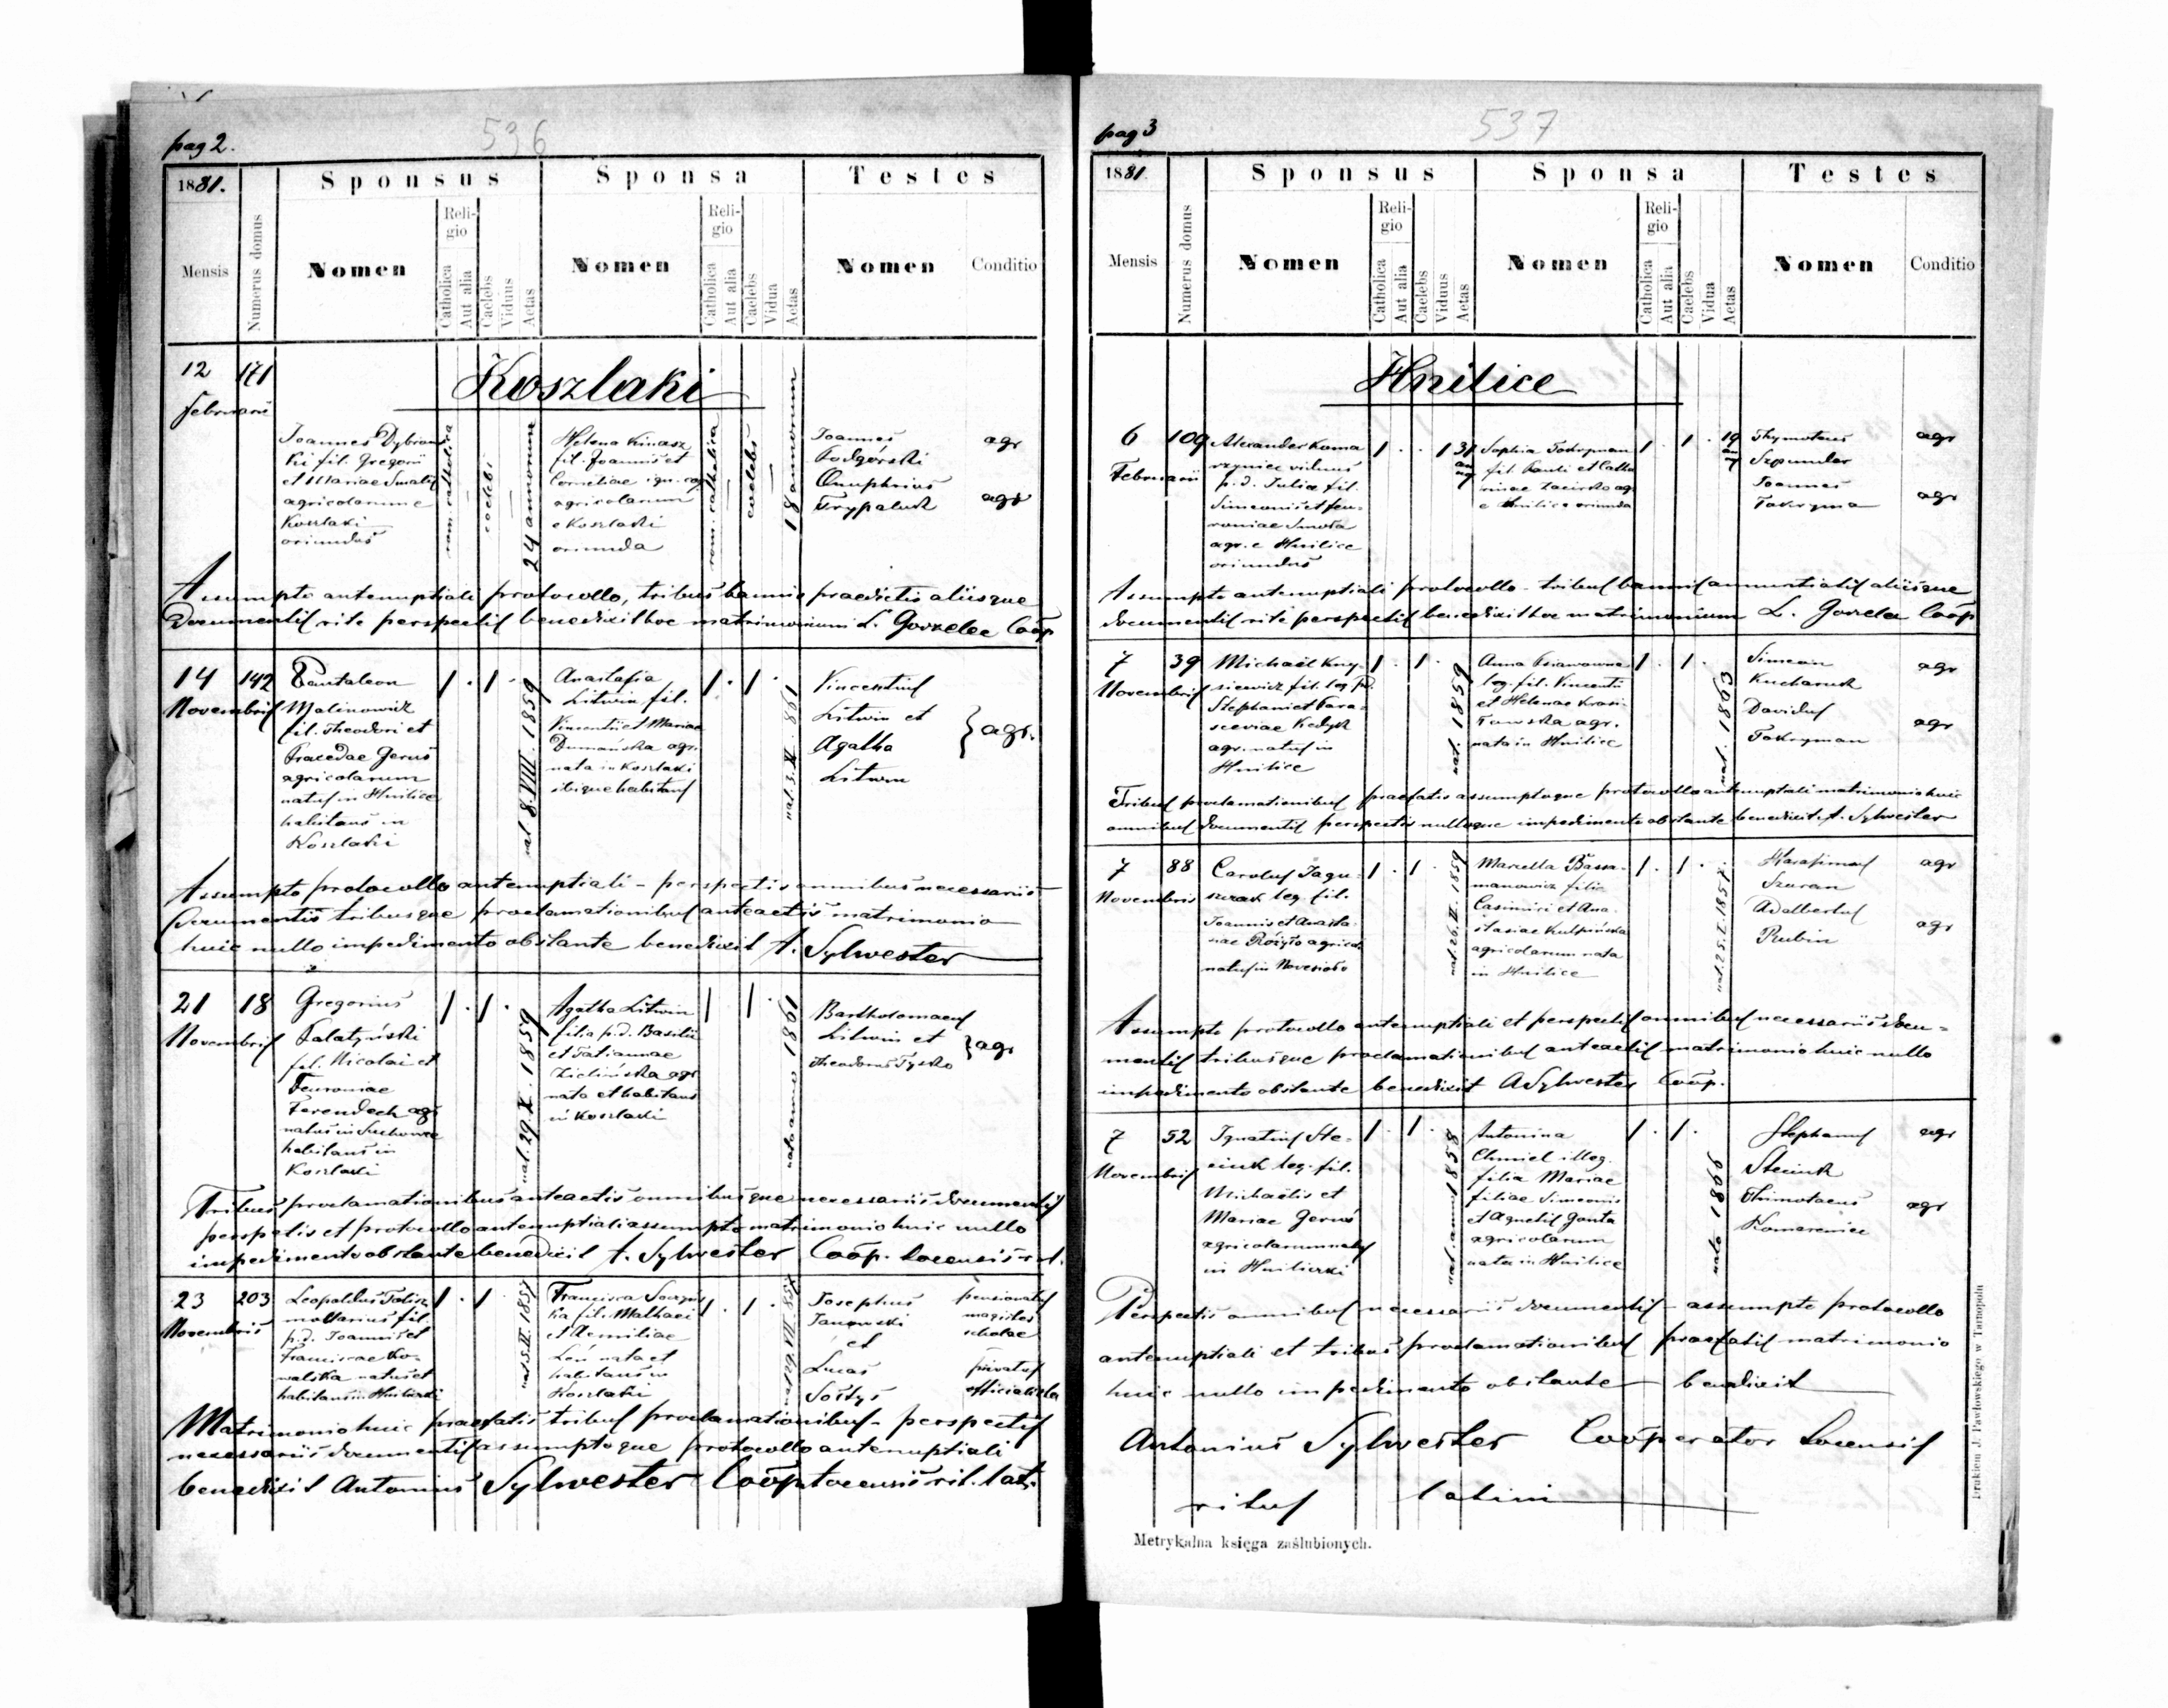 pag 2.
536
1881.
Sponsus
Sponsa
Testes
Mensis
Numerus domus
Nomen
Religio
Catholica
Aut alia
Caelebs
Viduus
Aetas
Nomen
Religio
Catholica
Aut alia
Caelebs
Vidua
Aetas
Nomen
Conditio
Koszlaki
12
Februarii
171
Joannes
ki fil. Gregorii
et Mariae
agricolarum e
Koszlaki
oriundus
rom. catholica
caelebs
24 annorum
Helena Kinasz
fil. Joannis et
Corneliae
agricolarum
e Koszlaki
oriunda
rom. catholica
caelebs
18 annorum
Joannes
Podgórski
agr
Onuphrius
Trypaluk
agr
Assumpto antenuptiali protocollo, tribus bannis praedictis aliisque
Documentis rite perspectis benedixit hoc matrimonium L. Gorzelec Coop
14
Novembris
142
Pantaleon
Malinowicz
fil. Theodori et
Praxedae Gerus
agricolarum
natus in Hnilice
habitans in
Koszlaki
1 . 1 .
nat. 8.VIII. 1859
Anastasia
Litwin fil.
Vincentii et Mariae
Dumańska agr.
nata in Koszlaki
ibique habitans
1 . 1 .
nat. 3. X. 861
Vincentius
Litwin et
Agatha
Litwin
} agr.
Assumpto protocollo antenuptiali - perspectis omnibus necessariis
Documentis tribusque proclamationibus anteactis matrimonio
huic nullo impedimento obstante benedixit A. Sylwester
21
Novembris
18
Gregorius
Palatyński
fil. Nicolai et
Feuroniae
Ferendech agr
natus in Suchowce
habitans in
Koszlaki
1 . 1 .
nat. 29. X. 1859
Agatha Litwin
filia p.d. Basilii
et Tatiannae
Zielińska agr
nata et habitans
in Koszlaki
1 1 .
nata anno 1861
Bartholomaeus
Litwin et
Theodorus Tysko
} agr
Tribus proclamationibus anteactis omnibusque necessariis documentis
perspectis et protocollo antenuptiali assumpto matrimonio huic nullo
impedimento obstante benedixit A. Sylwester Coop. Locensis r. l.
23
Novembris
203
Leopoldus
fil.
p.d. Joannis et
Franciscae Ko-
walska natus et
habitans in Hniliczki
1 . 1 .
Francisca
ka fil. Mathaei
et Aemiliae
Leń nata et
habitans in
Koszlaki
1 . 1 .
nat 29. VII. 857
Josephus
Janowski
et
Lucas
Sołtys
pensionatus
magister
scholae
privatus
officialista
Matrimonio huic praefatis tribus proclamationibus - perspectis
necessariis documentis assumptoque protocollo antenuptiali
benedixit Antonius Sylwester Coop Locensis rit. lat.
pag 3
537
1881.
Sponsus
Sponsa
Testes
Mensis
Numerus domus
Nomen
Religio
Catholica
Aut alia
Caelebs
Viduus
Aetas
Nomen
Religio
Catholica
Aut alia
Caelebs
Vidua
Aetas
Nomen
Conditio
Hnilice
6
Februarii
109
Alexander Koma
rzyniec viduus
p.d. Juliae fil.
Simeonis et Feu-
roniae Smota
agr. e Hnilice
oriundus
1 . . 1 31
Sophia Tokryman
fil. Pauli et Catha
rinae agr
e Hnilice oriunda
1 . 1 . 19
Thymoteus
Szpunder
agr
Joannes
Tokryma
agr
Assumpto antenuptiali protocollo - tribus bannis annuntiatis aliisque
documentis rite perspectis benedixit hoc matrimonium L. Gorzelec Coop
7
Novembris
39
Michaël Kny-
siewicz fil. leg. p.d.
Stephani et Para-
sceviae Kedyk
agr. natus in
Hnilice
1 . 1 .
nat. 1859
Anna
leg. fil. Vincentii
et Helenae Krasi-
agr.
nata in Hnilice
1 . 1 .
nat. 1863
Simeon
Kucharuk
agr
Davidus
Tokryman
agr
Tribus proclamationibus praefatis assumptoque protocollo antenuptiali matrimonio huic
omnibus documentis perspectis nulloque impedimento obstante benedixit A. Sylwester
7
Novembris
88
Carolus Jagu-
szczak leg. fil.
Joannis et Anasta-
siae Różyło agricol.
natus in Novesioło
1 . 1 .
nat. 26. II. 1859
Marcella Bassa-
manowicz filia
Casimiri et Ana-
stasiae Kulpińska
agricolarum nata
in Hnilice
1 . 1 .
nat. 25. I. 1857
Harasimus
Szaran
agr
Adalbertus
Rubin
agr
Assumpto protocollo antenuptiali et perspectis omnibus necessariis docu-
mentis tribusque proclamationibus anteactis matrimonio huic nullo
impedimento obstante benedixit A Sylwester Coop.
7
Novembris
52
Ignatius Ste-
ciuk leg. fil.
Michaëlis et
Mariae Gerus
agricolarum natus
in Hniliczki
1 . 1 .
nat. anno 1858
Antonina
Chmiel illeg.
filia Mariae
filiae Simeonis
et Agnetis Ganta
agricolarum
nata in Hnilice
1 . 1 .
nata 1866
Stephanus
Steciuk
agr
Thimotaeus
Komareniec
agr
Perspectis omnibus necessariis documentis - assumpto protocollo
antenuptiali et tribus proclamationibus praefatis matrimonio
huic nullo impedimento obstante benedixit
Antonius Sylwester Coöperator Locensis
ritus latini
Metrykalna księga zaślubionych.
Drukiem J. Pawłowskiego w Tarnopolu